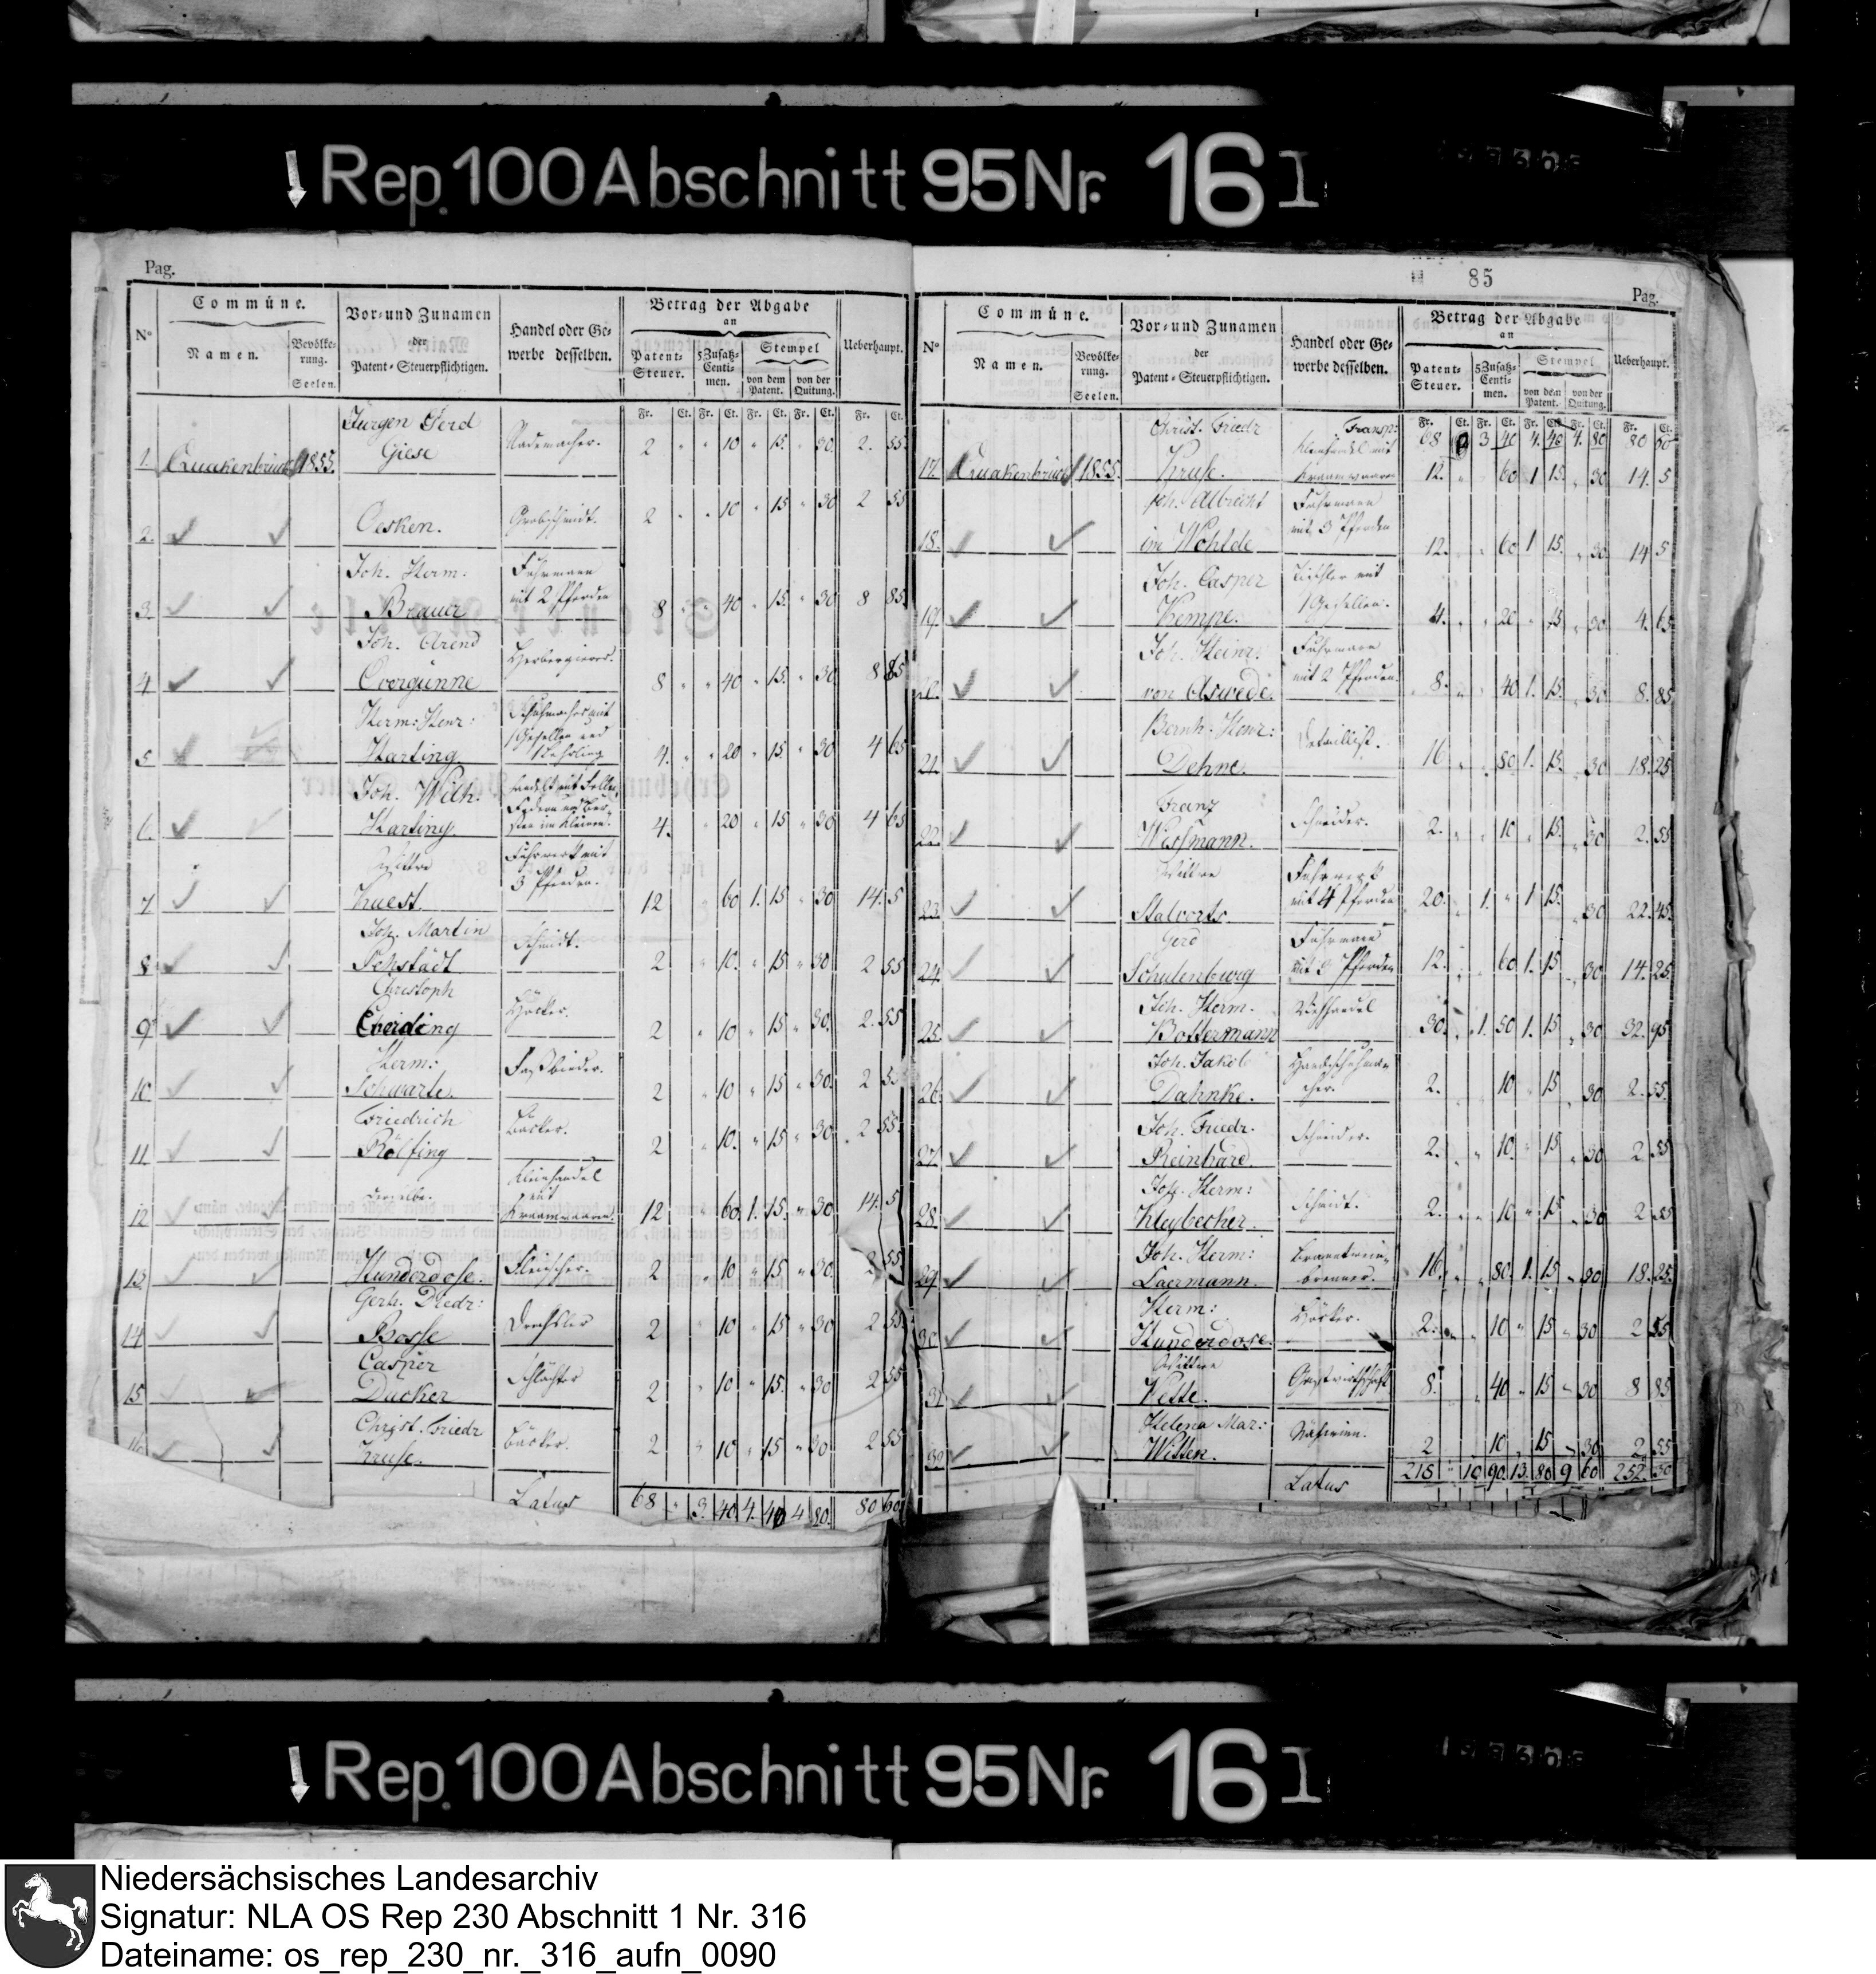 Rep. 100 Abschnitt 95 Nr. 16 I
Pag.
N°
Commüne.
Namen.
Bevölke-
rung.
Seelen.
Vor- und Zunamen
der
Patent-Steuerpflichtigen.
Handel oder Ge-
werbe desselben.
Betrag der Abgabe
an
Patent-
Steuer.
5Zusatz-
Centi-
men.
Stempel
von dem
Patent.
von der
Quitung.
Ueberhaupt.
Fr. Ct. Fr. Ct. Fr. Ct. Fr. Ct. Fr. Ct.
Jürgen Gerd
1. Quakenbrück 1855. Giese Rademacher. 2 " " 10 " 15 " 30 2. 55
2. Oesken. Grobschmidt. 2 " " 10 " 15 " 30 2 55
Joh. Herm: Fuhrmann
3. Brauer mit 2 Pferden 8 " " 40 " 15. " 30 8 85
Joh. Arend
4. Overgünne Herbergierer. 8 " " 40 " 15. " 30 8 85
Herm: Henr: Schuhmacher mit
1 Gesellen und
5. Harting 1 Lehrling 4. " " 20 " 15 " 30 4 65
Joh. Wilh.
6. Harting 4. " 20 " 15 " 30 4 65
Wittwe Fuhrwerk mit
3 Pferden.
7 Kuest. 12 " 60 1. 15 " 30 14. 5
Joh. Martin
8. Schmidt. 2 " 10. " 15 " 30 2 55
Christoph
9. Everding Höcker. 2 " 10 " 15 " 30. 2. 55
Herm:
10 Schwarte. Faßbinder. 2 " 10 " 15 " 30. 2 55
Friedrich
11. Rölfing Bäcker. 2 " 10. " 15 " 30 2 55.
Kleinhandel
mit
12 derselbe. Kramwaaren. 12 " 60 1. 15. " 30 14. 5
13. Hunderdose. Fleischer. 2 " 10 " 15 " 30. 2 55
Gerh. Diedr:
14 Bosse Drechsler 2 " 10 " 15 " 30 2 55
Casper
15 Ducker Schlächter 2 " 10 " 15. " 30 2 55
Christ. Friedr
16 Kruse. Bäcker. 2 " 10 " 15 " 30 2 55
Latus 68 " 3. 40 4. 40 4 80. 80 60
85
Pag.
N°
Commüne.
Namen.
Bevölke-
rung.
Seelen.
Vor- und Zunamen
der
Patent-Steuerpflichtigen.
Handel oder Ge-
werbe desselben.
Betrag der Abgabe
an
Patent-
Steuer.
5Zusatz-
Centi-
men.
Stempel
von dem
Patent.
von der
Quitung.
Ueberhaupt.
Fr. Ct. Fr. Ct. Fr. Ct. Fr. Ct. Fr. Ct.
Transp: 68 3 40 4. 40 4. 80 80 60
Christ. Friedr Kleinhandel mit
17. Quakenbrück 1855. Kruse. Kramwaaren 12. " 60 1 15. " 30 14. 5
Joh. Albrecht Fuhrmann
mit 3 Pferden
18. im Wohlde 12. " 60 1 15. " 30 14 5
Joh. Casper Tischler mit
19. Kempe. 1 Gesellen. 4. " " 20 " 15 " 30 4. 65
Joh. Heinr: Fuhrmann
20. von Aswede. mit 2 Pferden. 8. " 40 1. 15. " 30 8. 85
Bernh. Henr:
21. Dehne. Detaillist. 16 " 80 1. 15. " 30 18. 25
Franz
22. Wessmann. Schneider. 2. " 10 " 15. " 30 2. 55
Wittwe Fuhrwerk
23. Stalvorts. mit 4 Pferden 20. 1. " 1 15. " 30 22. 45.
Gerd Fuhrmann
24. Schulenburg mit 3 Pferden 12. " 60 1. 15 " 30 14. 25
Joh. Herm.
25. Bottermann Viehhandel 30. " 1. 50 1. 15 " 30 32. 95
Joh. Jakob Handschuhma-
26. Dahnke. cher. 2. 10 " 15 " 30 2. 55.
Joh. Friedr.
27. Reinhard. Schneider. 2. " 10. " 15 " 30 2 55
Joh. Herm:
28. Kleybecker. Schmidt. 2. " 10 " 15 " 30 2 55
Joh. Herm: Branntwein-
29. Laermann. brenner. 16. " 80. 1. 15 " 30 18. 25.
Herm:
30. Hunderdose. Höcker. 2. " 10 " 15 " 30 2 55
Wittwe
31. Wette. Gastwirthschaft 8. " 40 " 15 " 30 8 85
Helena Mar:
32. Witten. Näherinn. 2 10 " 15 " 30 2 55
Latus 218 " 10 90 13. 80 9 60 252. 30
Rep. 100 Abschnitt 95 Nr. 16 I
Niedersächsisches Landesarchiv
Signatur: NLA OS Rep 230 Abschnitt 1 Nr. 316
Dateiname: os_rep_230_nr._316_aufn_0090